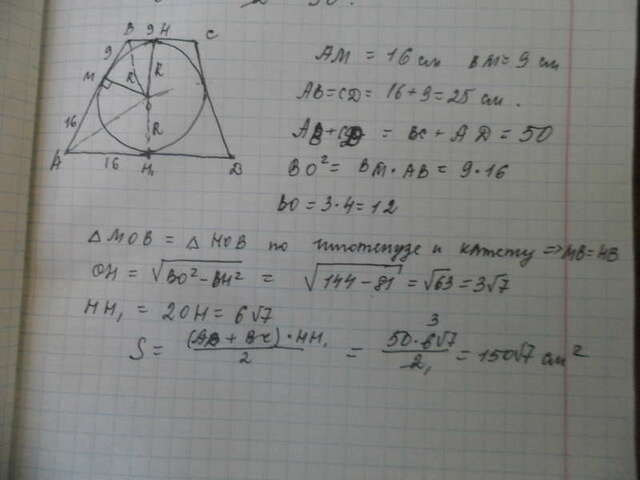 B 9 H C
9
M R R
16 R
A 16 H₁ D
AM = 16 см BM = 9 см
AB = CD = 16 + 9 = 25 см.
AB + CD = BC + AD = 50
BO² = BM · AB = 9 · 16
BO = 3 · 4 = 12
△ MOB = △ HOB по гипотенузе и катету ⇒ MB = HB
OH = √BO² − BH² = √144 − 81 = √63 = 3√7
HH₁ = 2OH = 6√7
S = (AD + BC) · HH₁ / 2 = 50 · 6√7 / 2 = 150√7 см²
3
1